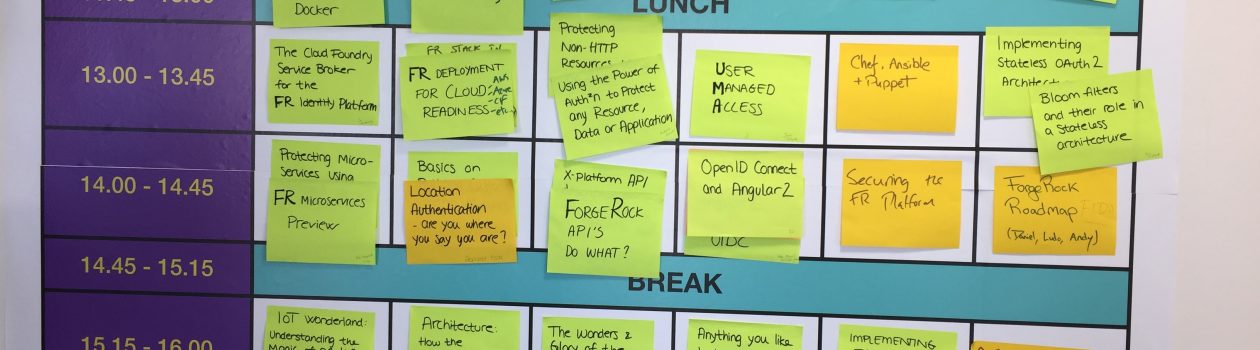 Docker
LUNCH
13.00 - 13.45
The Cloud Foundry
Service Broker
for the
FR Identity Platform
FR STACK
FR DEPLOYMENT
FOR CLOUD
READINESS
Protecting
Non-HTTP
Resources
Using the Power of
Auth*n to Protect
any Resource,
Data or Application
USER
MANAGED
ACCESS
Chef, Ansible
+ Puppet
Implementing
Stateless OAuth2
Bloom filters
and their role in
a Stateless
architecture
14.00 - 14.45
Protecting Micro-
Services Using
FR Microservices
Preview
Basics on
Location
Authentication
- are you where
you say you are?
X-Platform API
FORGEROCK
API'S
DO WHAT?
OpenID Connect
and Angular2
OIDC
Securing the
FR Platform
ForgeRock
Roadmap
(Daniel, Ludo, Andy)
14.45 - 15.15
BREAK
15.15 - 16.00
IoT Wonderland:
Understanding the
Architecture:
How the
The Wonders &
Glory of the
Anything you like
IMPLEMENTING